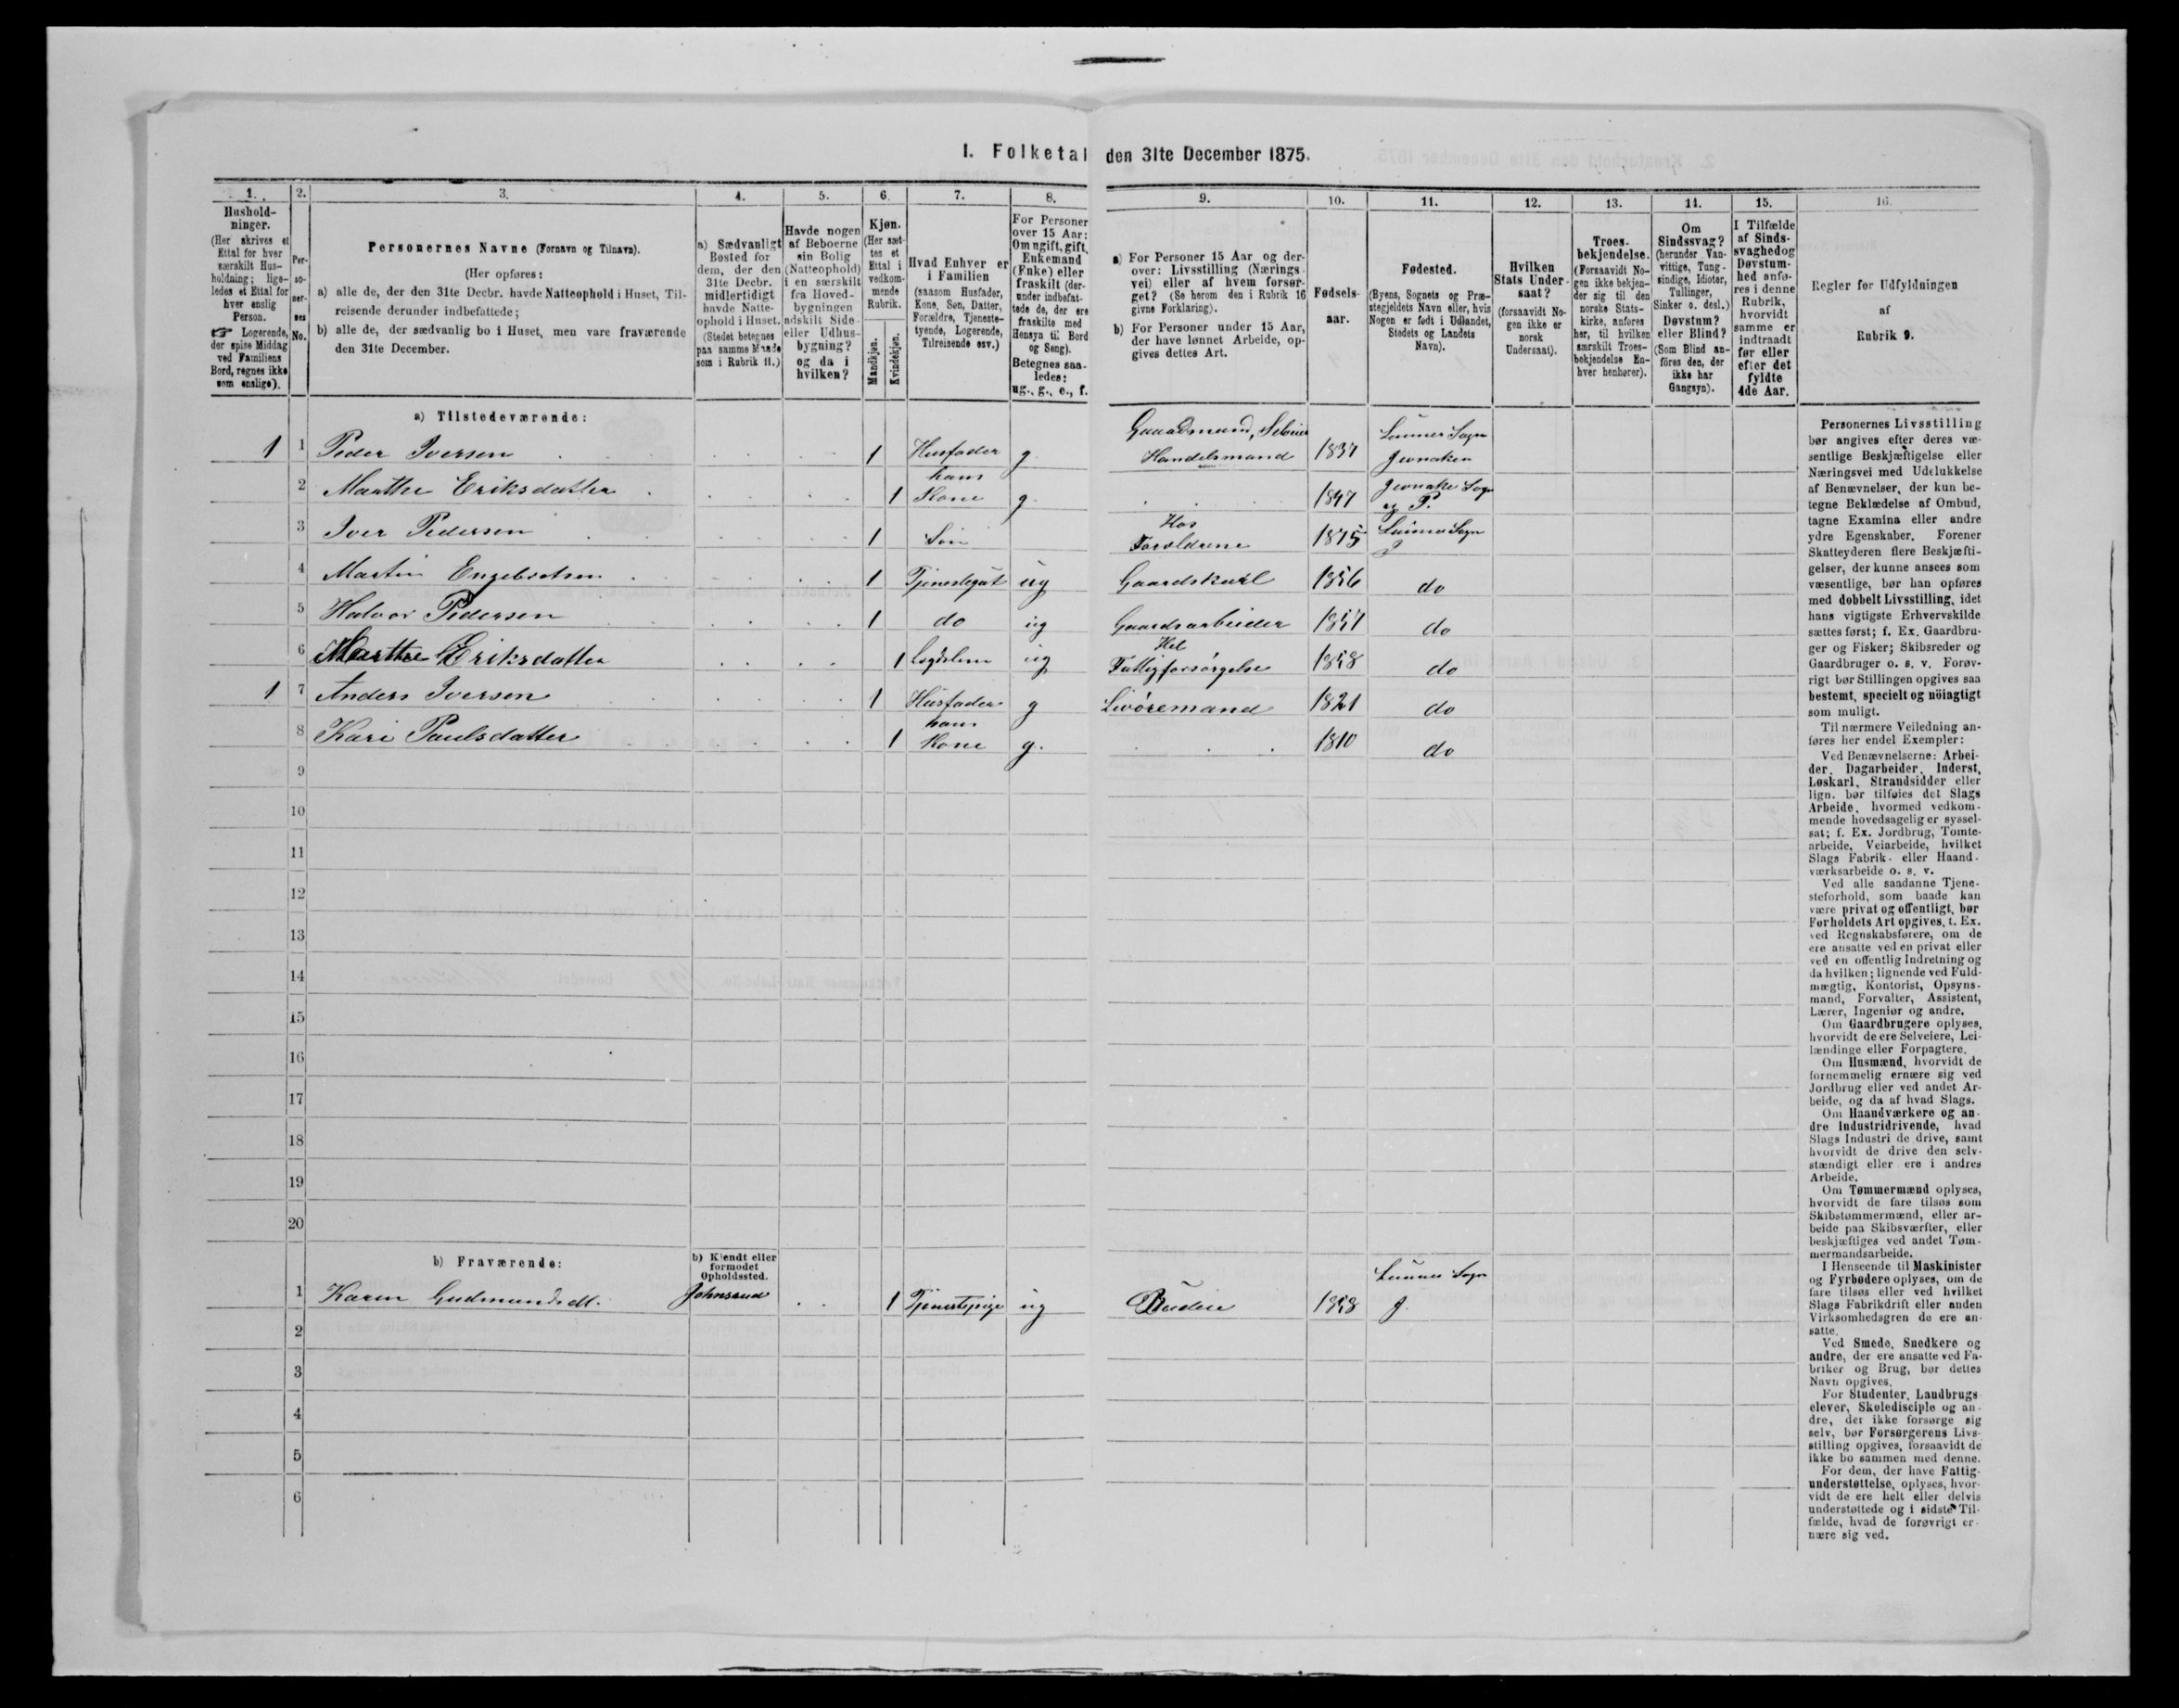 I. Folketal den 31te December 1875.
1.
Hushold-
ninger.
(Her skrives et
Ettal for hver
særskilt Hus-
holdning; lige-
ledes et Ettal for
hver enslig
Person.
☞ Logerende,
der spise Middag
ved Familiens
Bord, regnes ikke
som enslige).
2.
Per-
so-
ner-
nes
No.
3.
Personernes Navne (Fornavn og Tilnavn).
(Her opføres:
a) alle de, der den 31te Decbr. havde Natteophold i Huset, Til-
reisende derunder indbefattede;
b) alle de, der sædvanlig bo i Huset, men vare fraværende
den 31te December.
4.
a) Sædvanligt
Bosted for
dem, der den
31te Decbr.
midlertidigt
havde Natte-
ophold i Huset.
(Stedet betegnes
paa samme Maade
som i Rubrik 11.)
5.
Havde nogen
af Beboerne
sin Bolig
(Natteophold)
i en særskilt
fra Hoved-
bygningen
adskilt Side-
eller Udhus-
bygning?
og da i
hvilken?
6.
Kjøn.
(Her sæt-
tes et
Ettal i
vedkom-
mende
Rubrik.
Mandkjøn.
Kvindekjøn.
7.
Hvad Enhver er
i Familien
(saasom Husfader,
Kone, Søn, Datter,
Forældre, Tjeneste-
tyende, Logerende,
Tilreisende osv.)
8.
For Personer
over 15 Aar:
Om ugift, gift,
Enkemand
(Enke) eller
fraskilt (der-
under indbefat-
tede de, der ere
fraskilte med
Hensyn til Bord
og Seng).
Betegnes saa-
ledes:
ug., g., e., f.
9.
a) For Personer 15 Aar og der-
over: Livsstilling (Nærings-
vei) eller af hvem forsør-
get? (Se herom den i Rubrik 16
givne Forklaring).
b) For Personer under 15 Aar,
der have lønnet Arbeide, op-
gives dettes Art.
10.
Fødsels-
aar.
11.
Fødested.
(Byens, Sognets og Præ-
stegjeldets Navn eller, hvis
Nogen er født i Udlandet,
Stedets og Landets
Navn).
12.
Hvilken
Stats Under-
saat?
(forsaavidt No-
gen ikke er
norsk
Undersaat).
13.
Troes-
bekjendelse.
(Forsaavidt No-
gen ikke bekjen-
der sig til den
norske Stats-
kirke, anføres
her, til hvilken
særskilt Troes-
bekjendelse En-
hver henhører).
14.
Om
Sindssvag?
(herunder Van-
vittige, Tung-
sindige, Idioter,
Tullinger,
Sinker o. desl.)
Døvstum?
eller Blind?
(Som Blind an-
føres den, der
ikke har
Gangsyn).
15.
I Tilfælde
af Sinds-
svaghed og
Døvstum-
hed anfø-
res i denne
Rubrik,
hvorvidt
samme er
indtraadt
før eller
efter det
fyldte
4de Aar.
16.
Regler for Udfyldningen
af
Rubrik 9.
a) Tilstedeværende:
Gaardmand, Lunner Sogn
1 1 Peder Iversen 1 Husfader g Handelsmand 1837 Jevnaker
hans Jevnaker Sogn
2 Marthe Eriksdatter 1 Kone g. 1847 og P.
Hos Lunner Sogn
3 Iver Pedersen 1 Søn Forældrene 1875 J
4 Martin Engebretsen 1 Tjenestegut ug Gaardskarl 1856 do
5 Halvor Pedersen 1 do ug Gaardsarbeider 1857 do
Hel
6 Marthe Eriksdatter 1 Lægdslem ug Fattigforsørgelse 1858 do
1 7 Anders Iversen 1 Husfader g Livøremand 1821 do
hans
8 Kari Paulsdatter 1 Kone g. 1810 do
9
10
11
12
13
14
15
16
17
18
19
20
b) Fraværende:
b) Kjendt eller
formodet
Opholdssted.
Lunner Sogn
1 Karen Gudmundsdt. Johnsrud 1 Tjenestepige ug Budeie 1858 J.
2
3
4
5
6
Personernes Livsstilling
bør angives efter deres væ-
sentlige Beskjæftigelse eller
Næringsvei med Udelukkelse
af Benævnelser, der kun be-
tegne Beklædelse af Ombud,
tagne Examina eller andre
ydre Egenskaber. Forener
Skatteyderen flere Beskjæfti-
gelser, der kunne ansees som
væsentlige, bør han opføres
med dobbelt Livsstilling, idet
hans vigtigste Erhvervskilde
sættes først; f. Ex. Gaardbru-
ger og Fisker; Skibsreder og
Gaardbruger o. s. v. Forøv-
rigt bør Stillingen opgives saa
bestemt, specielt og nöiagtigt
som muligt.
Til nærmere Veiledning an-
føres her endel Exempler:
Ved Benævnelserne: Arbei-
der, Dagarbeider, Inderst,
Løskarl, Strandsidder eller
lign. bør tilføies det Slags
Arbeide, hvormed vedkom-
mende hovedsagelig er syssel-
sat; f. Ex. Jordbrug, Tomte-
arbeide, Veiarbeide, hvilket
Slags Fabrik- eller Haand-
værksarbeide o. s. v.
Ved alle saadanne Tjene-
steforhold, som baade kan
være privat og offentligt, bør
Forholdets Art opgives, t. Ex.
ved Regnskabsførere, om de
ere ansatte ved en privat eller
ved en offentlig Indretning og
da hvilken; lignende ved Fuld-
mægtig, Kontorist, Opsyns-
mand, Forvalter, Assistent,
Lærer, Ingeniør og andre.
Om Gaardbrugere oplyses,
hvorvidt de ere Selveiere, Lei-
lændinge eller Forpagtere.
Om Husmænd, hvorvidt de
fornemmelig ernære sig ved
Jordbrug eller ved andet Ar-
beide, og da af hvad Slags.
Om Haandværkere og an-
dre Industridrivende, hvad
Slags Industri de drive, samt
hvorvidt de drive den selv-
stændigt eller ere i andres
Arbeide.
Om Tømmermænd oplyses,
hvorvidt de fare tilsøs som
Skibstømmermænd, eller ar-
beide paa Skibsværfter, eller
beskjæftiges ved andet Tøm-
mermandsarbeide.
I Henseende til Maskinister
og Fyrbødere oplyses, om de
fare tilsøs eller ved hvilket
Slags Fabrikdrift eller anden
Virksomhedsgren de ere an-
satte.
Ved Smede, Snedkere og
andre, der ere ansatte ved Fa-
briker og Brug, bør dettes
Navn opgives.
For Studenter, Landbrugs-
elever, Skoledisciple og an-
dre, der ikke forsørge sig
selv, bør Forsørgerens Livs-
stilling opgives, forsaavidt de
ikke bo sammen med denne.
For dem, der have Fattig-
understøttelse, oplyses, hvor-
vidt de ere helt eller delvis
understøttede og i sidste Til-
fælde, hvad de forøvrigt er-
nære sig ved.